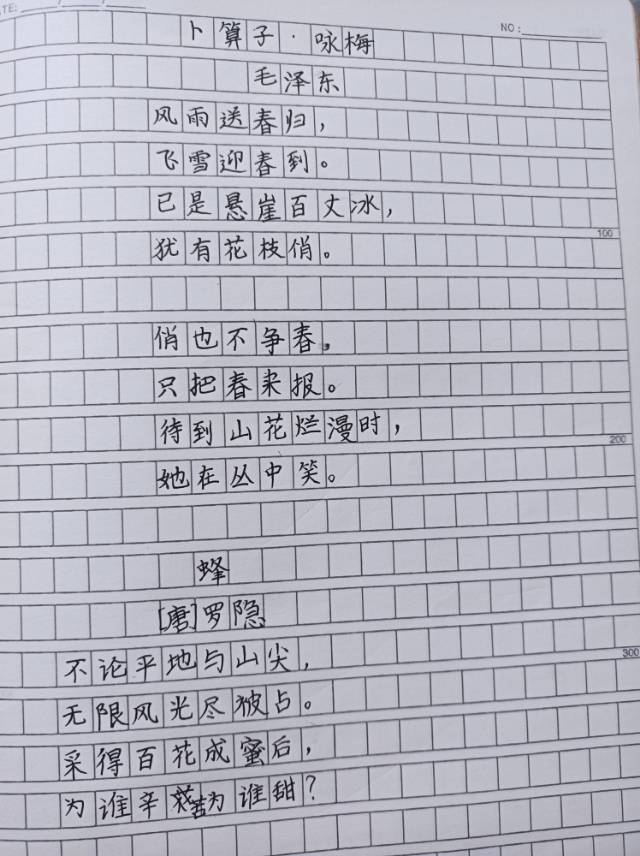 DATE: / /
NO:
卜算子·咏梅
毛泽东
风雨送春归,
飞雪迎春到。
已是悬崖百丈冰,
犹有花枝俏。
100
俏也不争春,
只把春来报。
待到山花烂漫时,
她在丛中笑。
200
蜂
[唐]罗隐
不论平地与山尖,
300
无限风光尽被占。
采得百花成蜜后,
为谁辛苦为谁甜?